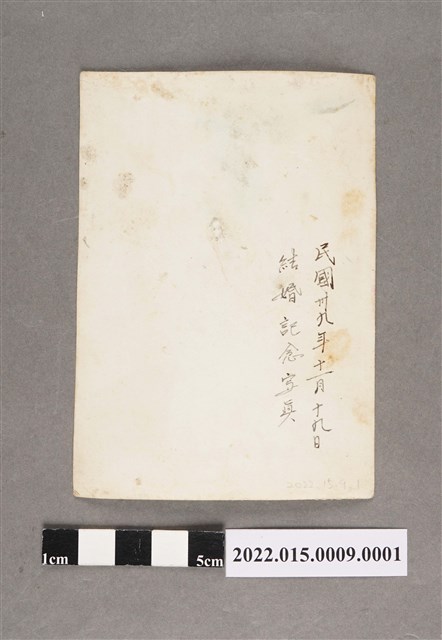 民國卅九年十一月十九日
結婚記念写真
1cm
5cm
2022.015.0009.0001